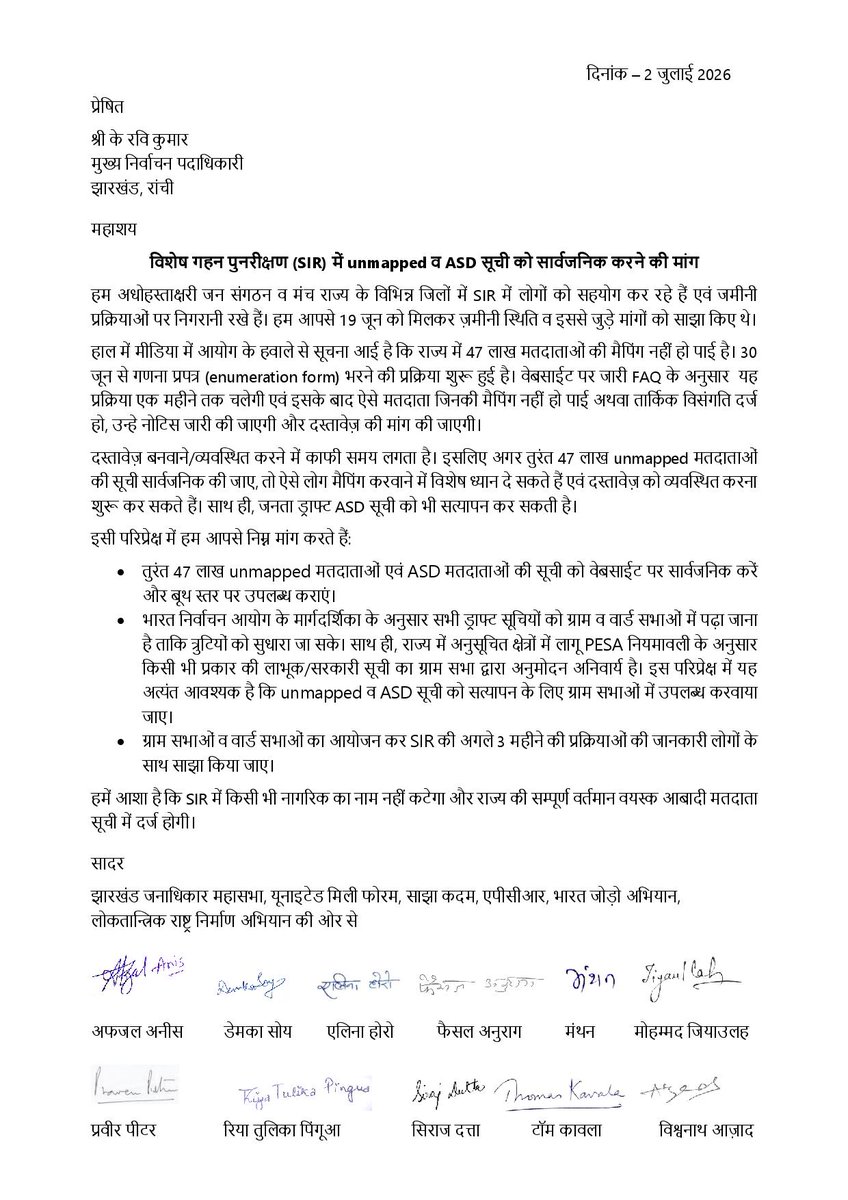 दिनांक – 2 जुलाई 2026
प्रेषित
श्री के रवि कुमार
मुख्य निर्वाचन पदाधिकारी
झारखंड, रांची
महाशय
विशेष गहन पुनरीक्षण (SIR) में unmapped व ASD सूची को सार्वजनिक करने की मांग
हम अधोहस्ताक्षरी जन संगठन व मंच राज्य के विभिन्न जिलों में SIR में लोगों को सहयोग कर रहे हैं एवं जमीनी
प्रक्रियाओं पर निगरानी रखे हैं। हम आपसे 19 जून को मिलकर ज़मीनी स्थिति व इससे जुड़े मांगों को साझा किए थे।
हाल में मीडिया में आयोग के हवाले से सूचना आई है कि राज्य में 47 लाख मतदाताओं की मैपिंग नहीं हो पाई है। 30
जून से गणना प्रपत्र (enumeration form) भरने की प्रक्रिया शुरू हुई है। वेबसाईट पर जारी FAQ के अनुसार यह
प्रक्रिया एक महीने तक चलेगी एवं इसके बाद ऐसे मतदाता जिनकी मैपिंग नहीं हो पाई अथवा तार्किक विसंगति दर्ज
हो, उन्हे नोटिस जारी की जाएगी और दस्तावेज़ की मांग की जाएगी।
दस्तावेज़ बनवाने/व्यवस्थित करने में काफी समय लगता है। इसलिए अगर तुरंत 47 लाख unmapped मतदाताओं
की सूची सार्वजनिक की जाए, तो ऐसे लोग मैपिंग करवाने में विशेष ध्यान दे सकते हैं एवं दस्तावेज़ को व्यवस्थित करना
शुरू कर सकते हैं। साथ ही, जनता ड्राफ्ट ASD सूची को भी सत्यापन कर सकती है।
इसी परिप्रेक्ष में हम आपसे निम्न मांग करते हैं:
• तुरंत 47 लाख unmapped मतदाताओं एवं ASD मतदाताओं की सूची को वेबसाईट पर सार्वजनिक करें
और बूथ स्तर पर उपलब्ध कराएं।
• भारत निर्वाचन आयोग के मार्गदर्शिका के अनुसार सभी ड्राफ्ट सूचियों को ग्राम व वार्ड सभाओं में पढ़ा जाना
है ताकि त्रुटियों को सुधारा जा सके। साथ ही, राज्य में अनुसूचित क्षेत्रों में लागू PESA नियमावली के अनुसार
किसी भी प्रकार की लाभूक/सरकारी सूची का ग्राम सभा द्वारा अनुमोदन अनिवार्य है। इस परिप्रेक्ष में यह
अत्यंत आवश्यक है कि unmapped व ASD सूची को सत्यापन के लिए ग्राम सभाओं में उपलब्ध करवाया
जाए।
• ग्राम सभाओं व वार्ड सभाओं का आयोजन कर SIR की अगले 3 महीने की प्रक्रियाओं की जानकारी लोगों के
साथ साझा किया जाए।
हमें आशा है कि SIR में किसी भी नागरिक का नाम नहीं कटेगा और राज्य की सम्पूर्ण वर्तमान वयस्क आबादी मतदाता
सूची में दर्ज होगी।
सादर
झारखंड जनाधिकार महासभा, यूनाइटेड मिली फोरम, साझा कदम, एपीसीआर, भारत जोड़ो अभियान,
लोकतान्त्रिक राष्ट्र निर्माण अभियान की ओर से
Afzal Anis एलिना होरो मंथन
अफजल अनीस डेमका सोय एलिना होरो फैसल अनुराग मंथन मोहम्मद जियाउलह
Tulika Pingua Siraj Dutta Thomas Kavala
प्रवीर पीटर रिया तुलिका पिंगूआ सिराज दत्ता टॉम कावला विश्वनाथ आज़ाद